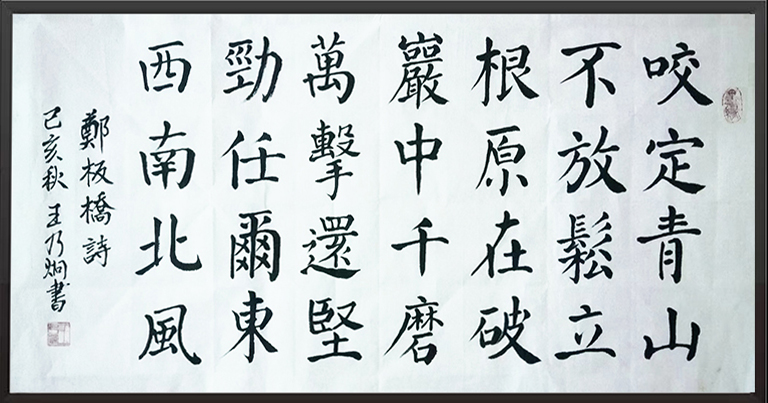 咬定青山
不放鬆立
根原在破
巖中千磨
萬擊還堅
勁任爾東
西南北風
鄭板橋詩
己亥秋 王乃炯書